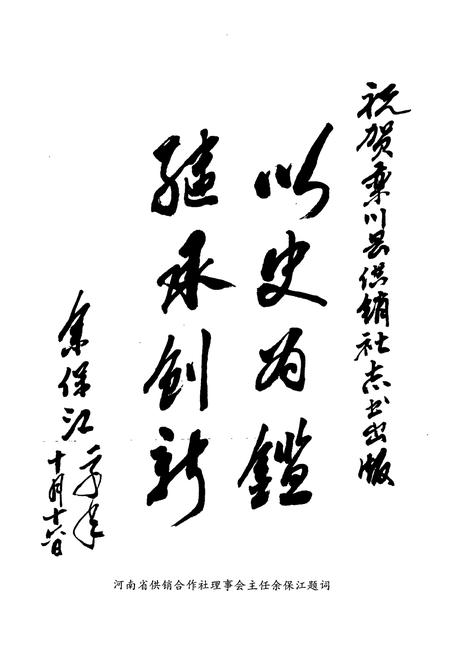 祝贺栾川县供销社志书出版
以史为鑑
继承创新
余保江
十月十日
河南省供销合作社理事会主任余保江题词